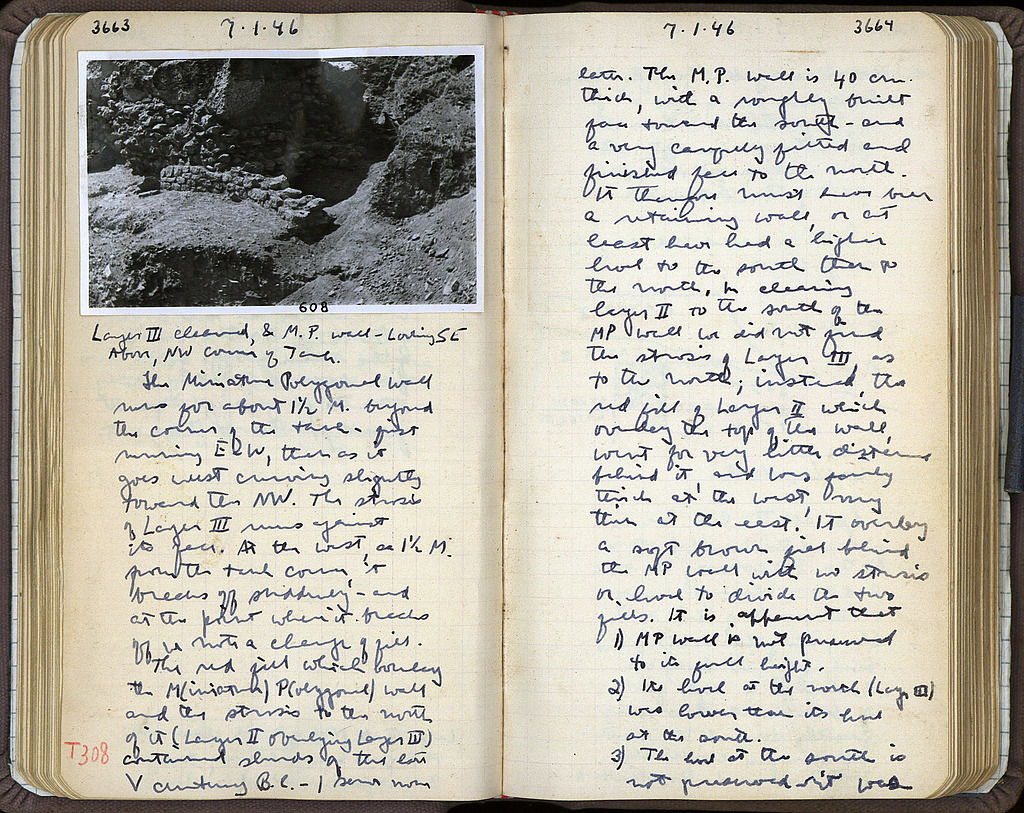 3663
7·1·46
608
Layer III cleaned, & M.P. wall - Looking SE
Above, NW corner of Tank.
The Miniature Polygonal wall
runs for about 1½ M. beyond
the corner of the tank - first
running E-W, then as it
goes west curving slightly
toward the NW. The strosis
of Layer III runs against
its face. At the west, ca 1½ M.
from the tank corner, it
breaks off suddenly - and
at the point where it breaks
off is note a change of fill.
The red fill which overlay
the M(iniature) P(olygonal) wall
and the strosis to the north
of it (Layer II overlying Layer III)
T308
contained sherds of the late
V century B.C. - / some
7·1·46
3664
later. The M.P. wall is 40 cm.
thick, with a roughly built
face toward the south - and
a very carefully fitted and
finished face to the north.
It therefore must have been
a retaining wall, or at
least have had a higher
level to the south than to
the north. In clearing
layer II to the south of the
MP wall we did not find
the strosis of Layer III, as
to the north; instead, the
red fill of Layer II which
overlay the top of the wall,
went for very little distance
behind it, and was fairly
thick at the west, very
thin at the east. It overlay
a soft brown fill behind
the MP wall with no strosis
or level to divide the two
fills. It is apparent that
1) MP wall is not preserved
to its full height.
2) Its level at the north (Layer III)
was lower than its level
at the south.
3) The level at the south is
not preserved - it was